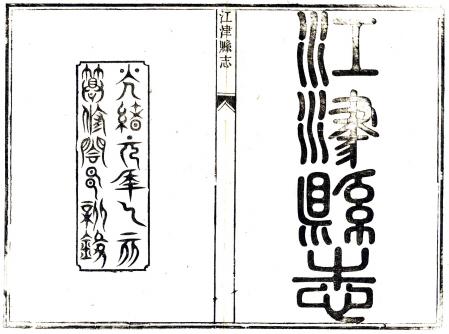 江津縣志
江津縣志
光緒元年乙亥
修邑新鐫